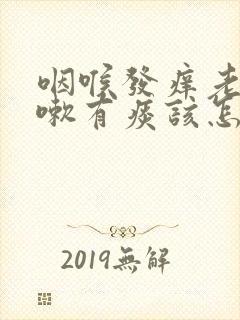 咽喉發痒老
嗽有痰該怎
2019無解